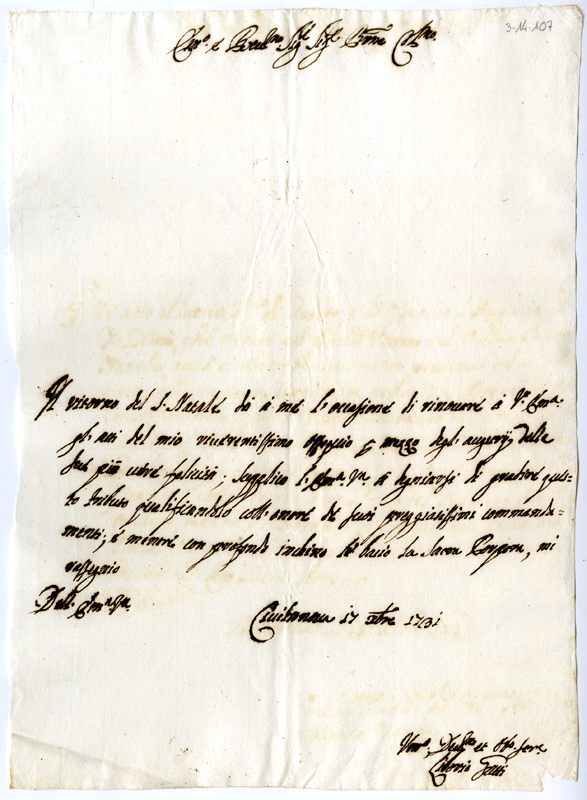 3-14-107
Em.o e Reud.mo Sig.r Sig.r Prone Col.mo
Il ritorno del S. Natale dà à me l'occasione di rinouare à V.a Em.a
gl'atti del mio riuerentissimo ossequio p mezzo degl'augurij della
sue più uere felicità; supplico l'Em.a V.a à degniarsi di gradire ques-
to tributo qualificandolo coll'onore de suoi preggiatissimi commanda-
menti; e mentre con profondo inchino le bacio la Sacra Porpora, mi
rassegnio
Dell'Em.a V.a
Ciuitanoua 17 Xbre 1731
Um.o Deu.mo et Ob. Ser.e